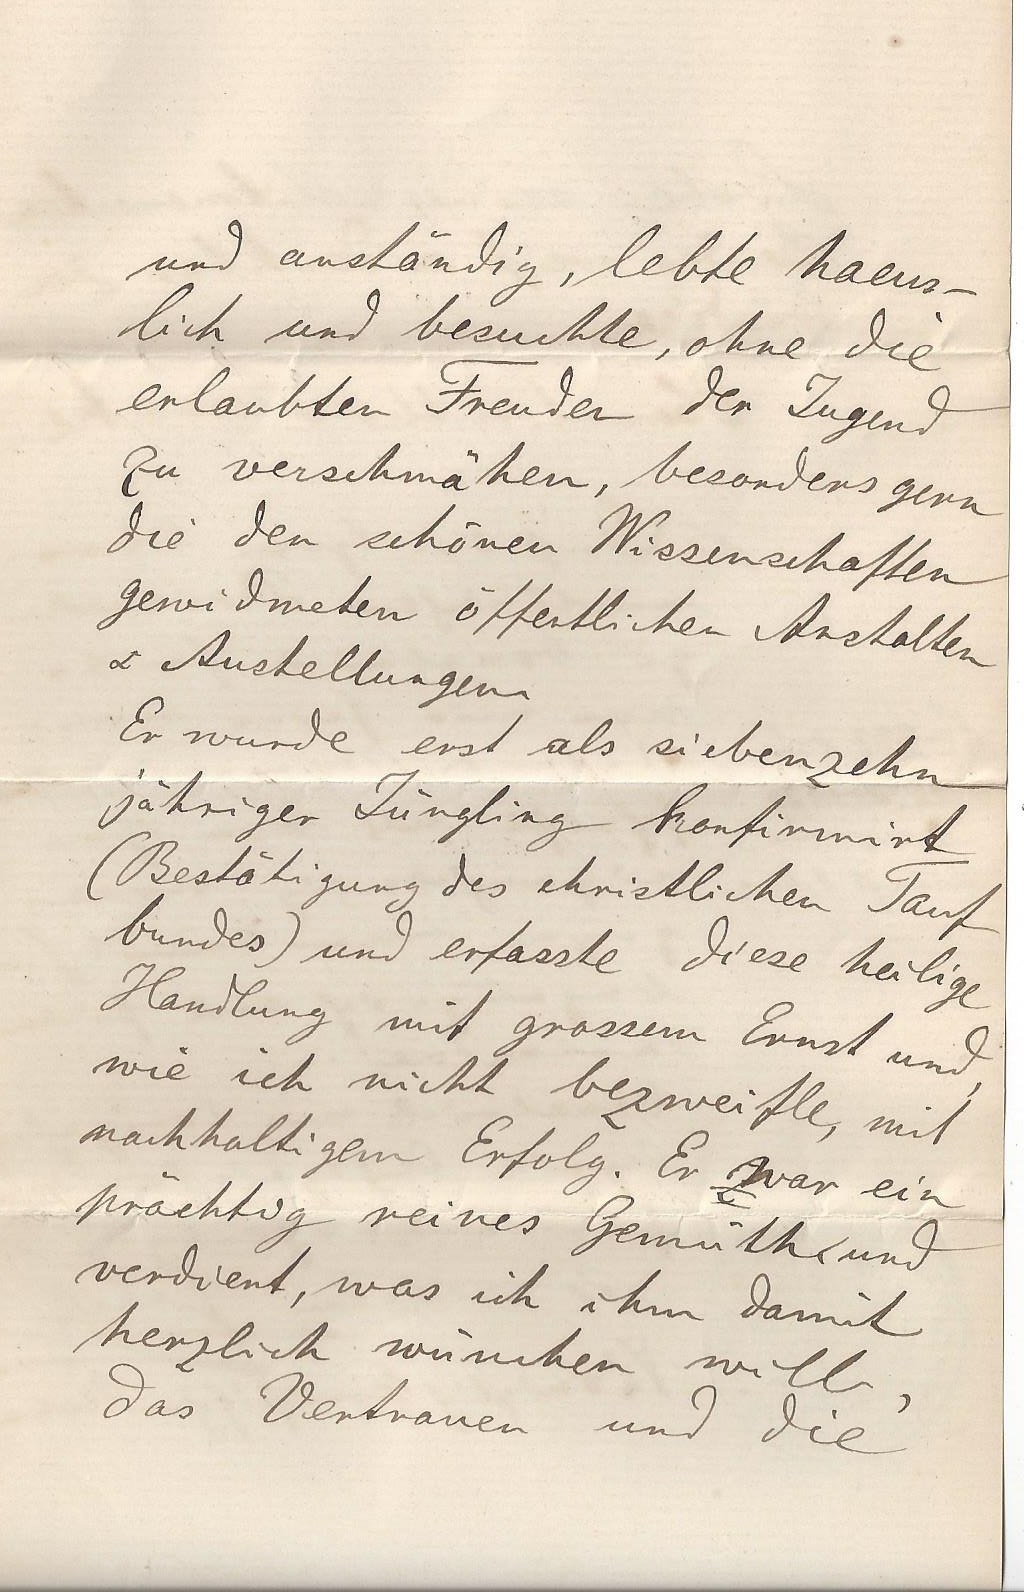 und anständig, lebte haeus-
lich und besuchte, ohne die
erlaubten Freuden der Jugend
zu verschmähen, besonders gern
die den schönen Wissenschaften
gewidmeten öffentlichen Anstalten
& Austellungen
Er wurde erst als siebenzehn
jähriger Jüngling konfirmirt
(Bestätigung des christlichen Tauf
bundes) und erfasste diese heilige
Handlung mit grossem Ernst und,
wie ich nicht bezweifle, mit
nachhaltigem Erfolg. Er war ein
prächtig reines Gemüth und
verdient, was ich ihm damit
herzlich wünschen will,
das Vertrauen und die